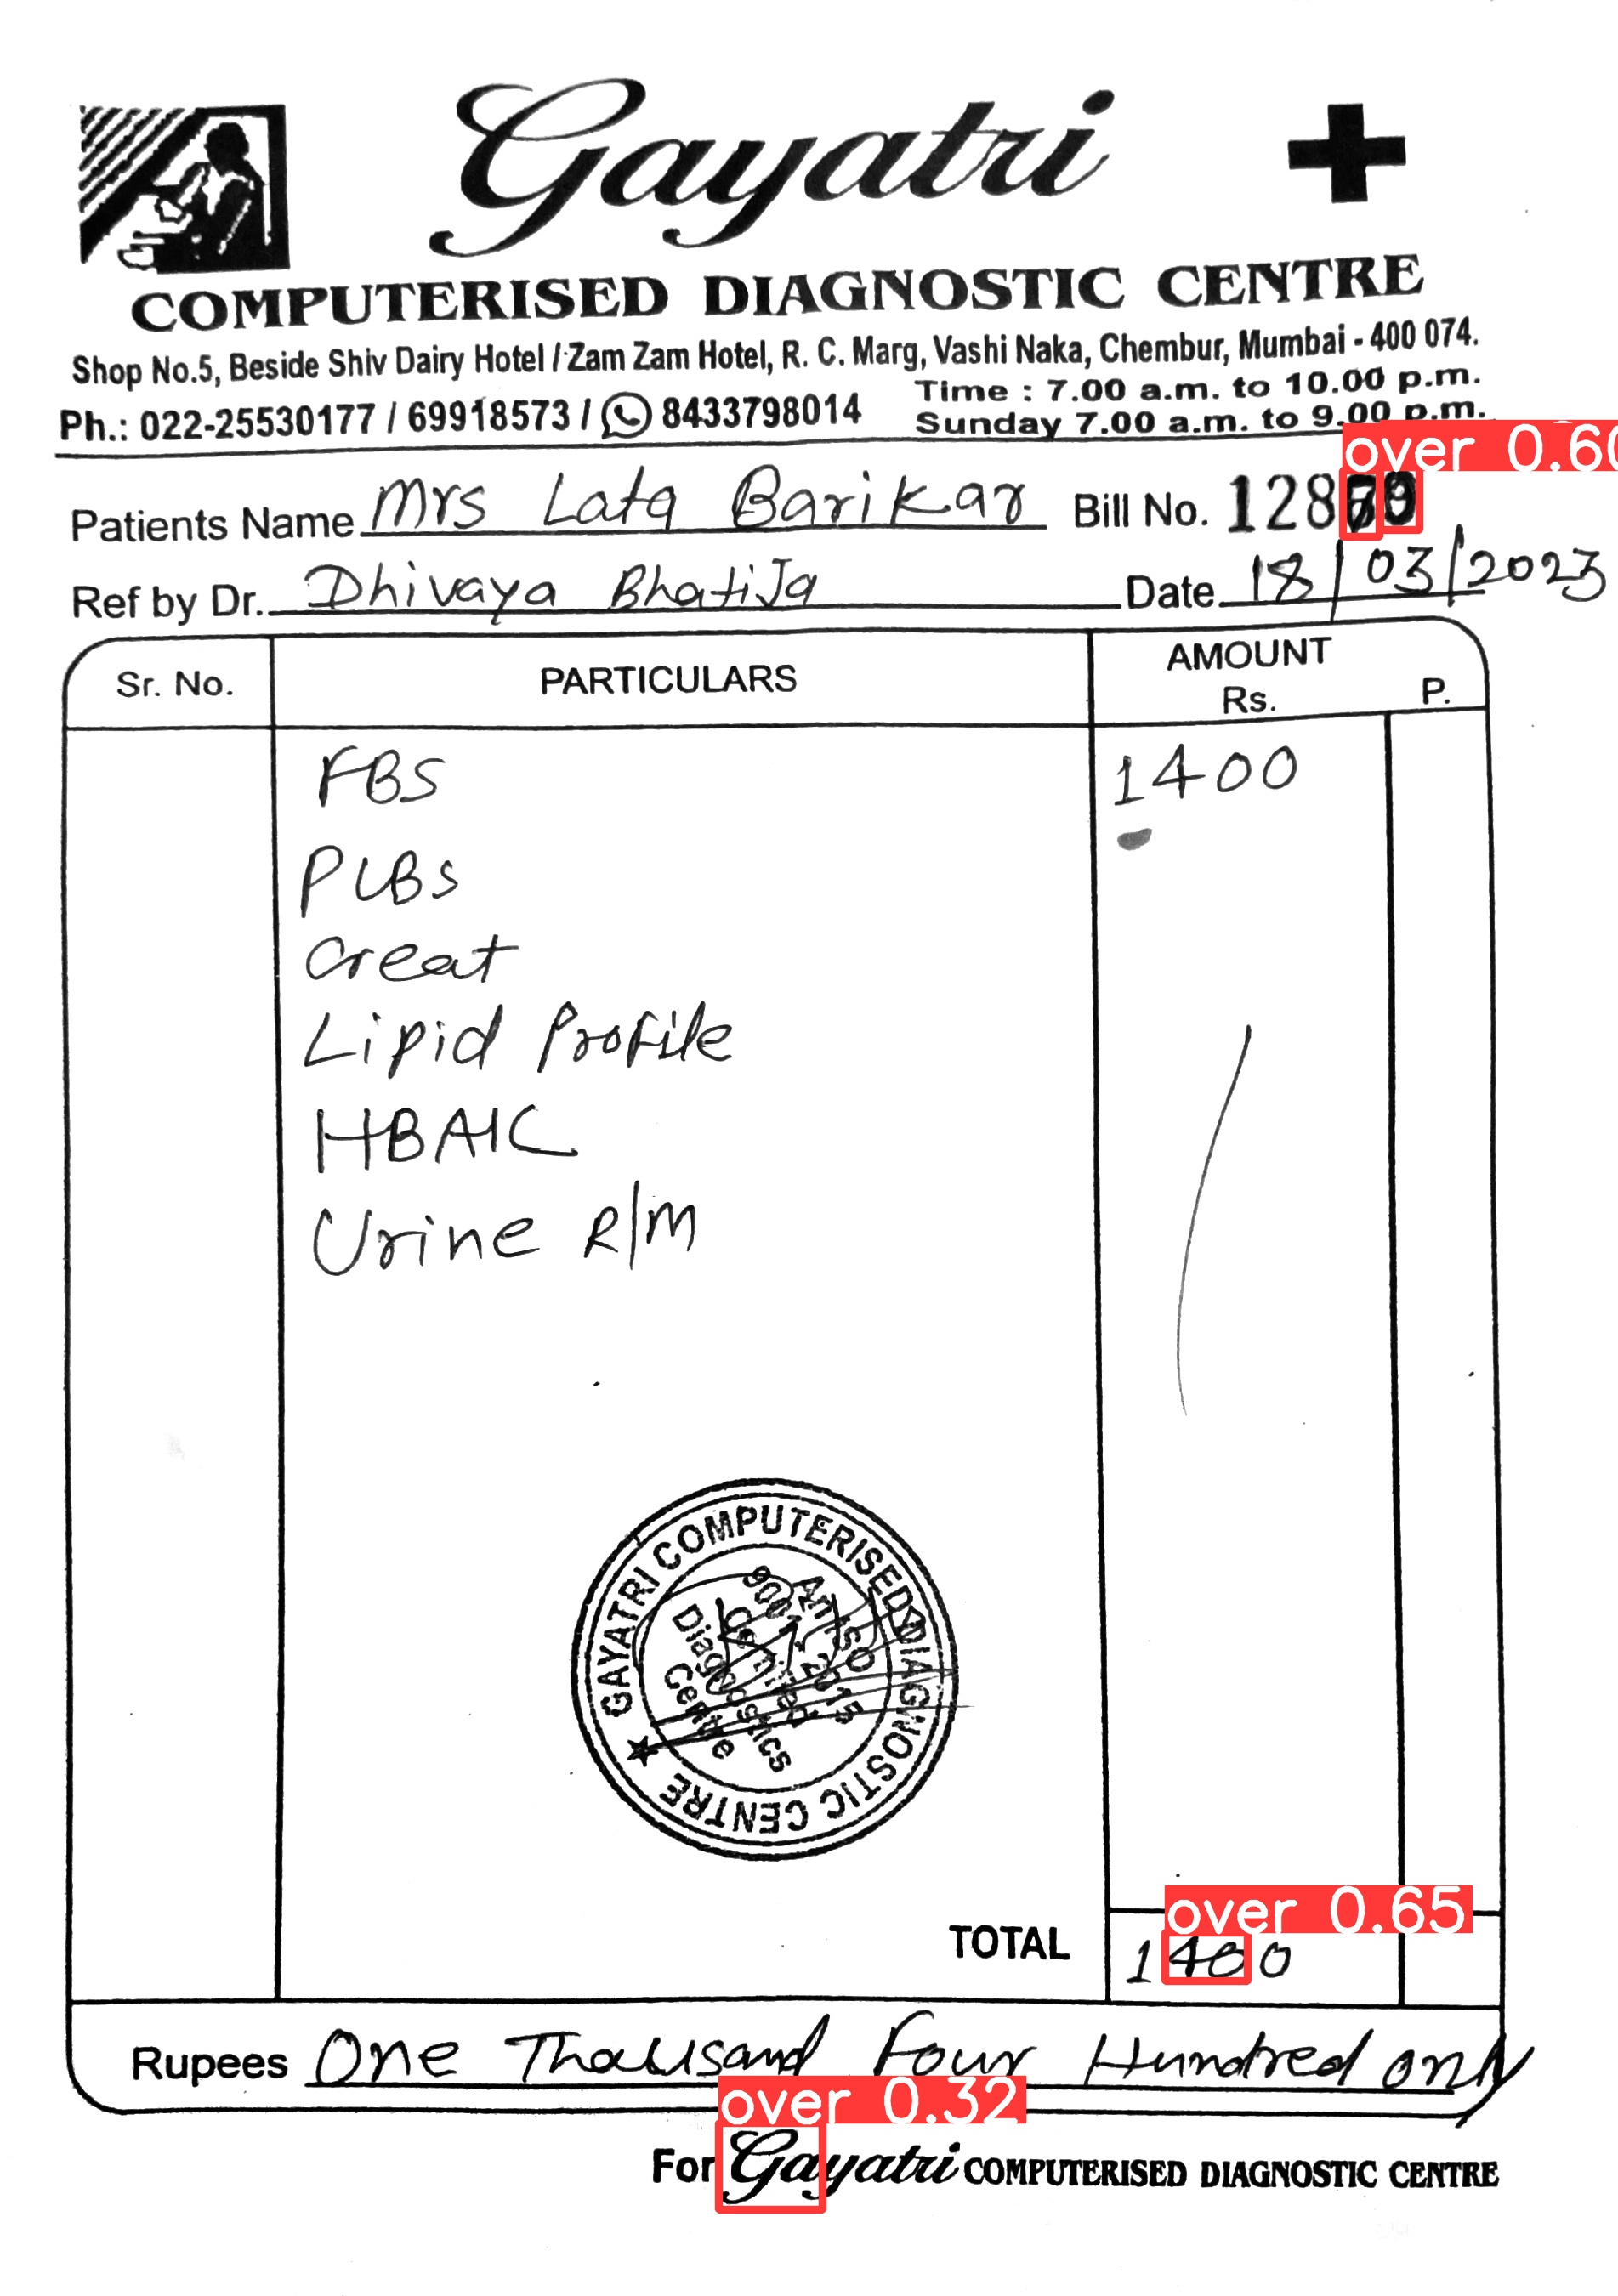 Gayatri
COMPUTERISED DIAGNOSTIC CENTRE
Shop No.5, Beside Shiv Dairy Hotel / Zam Zam Hotel, R. C. Marg, Vashi Naka, Chembur, Mumbai - 400 074.
Time : 7.00 a.m. to 10.00 p.m.
Ph.: 022-25530177 / 69918573 / 8433798014
Sunday 7.00 a.m. to 9.00 p.m.
over 0.60
Patients Name Mrs Lata Barikar Bill No.
Ref by Dr. Dhivaya Bhatija Date 18/03/2023
Sr. No. PARTICULARS AMOUNT
Rs. P.
FBS 1400
PLBS
Creat
Lipid Profile
HBA1C
Urine R/M
GAYATRI COMPUTERISED DIAGNOSTIC CENTRE
An ISO
9001:2015
Certified
Diagnostics
Centre
over 0.65
TOTAL 1400
Rupees One Thousand Four Hundred only
over 0.32
For Gayatri COMPUTERISED DIAGNOSTIC CENTRE